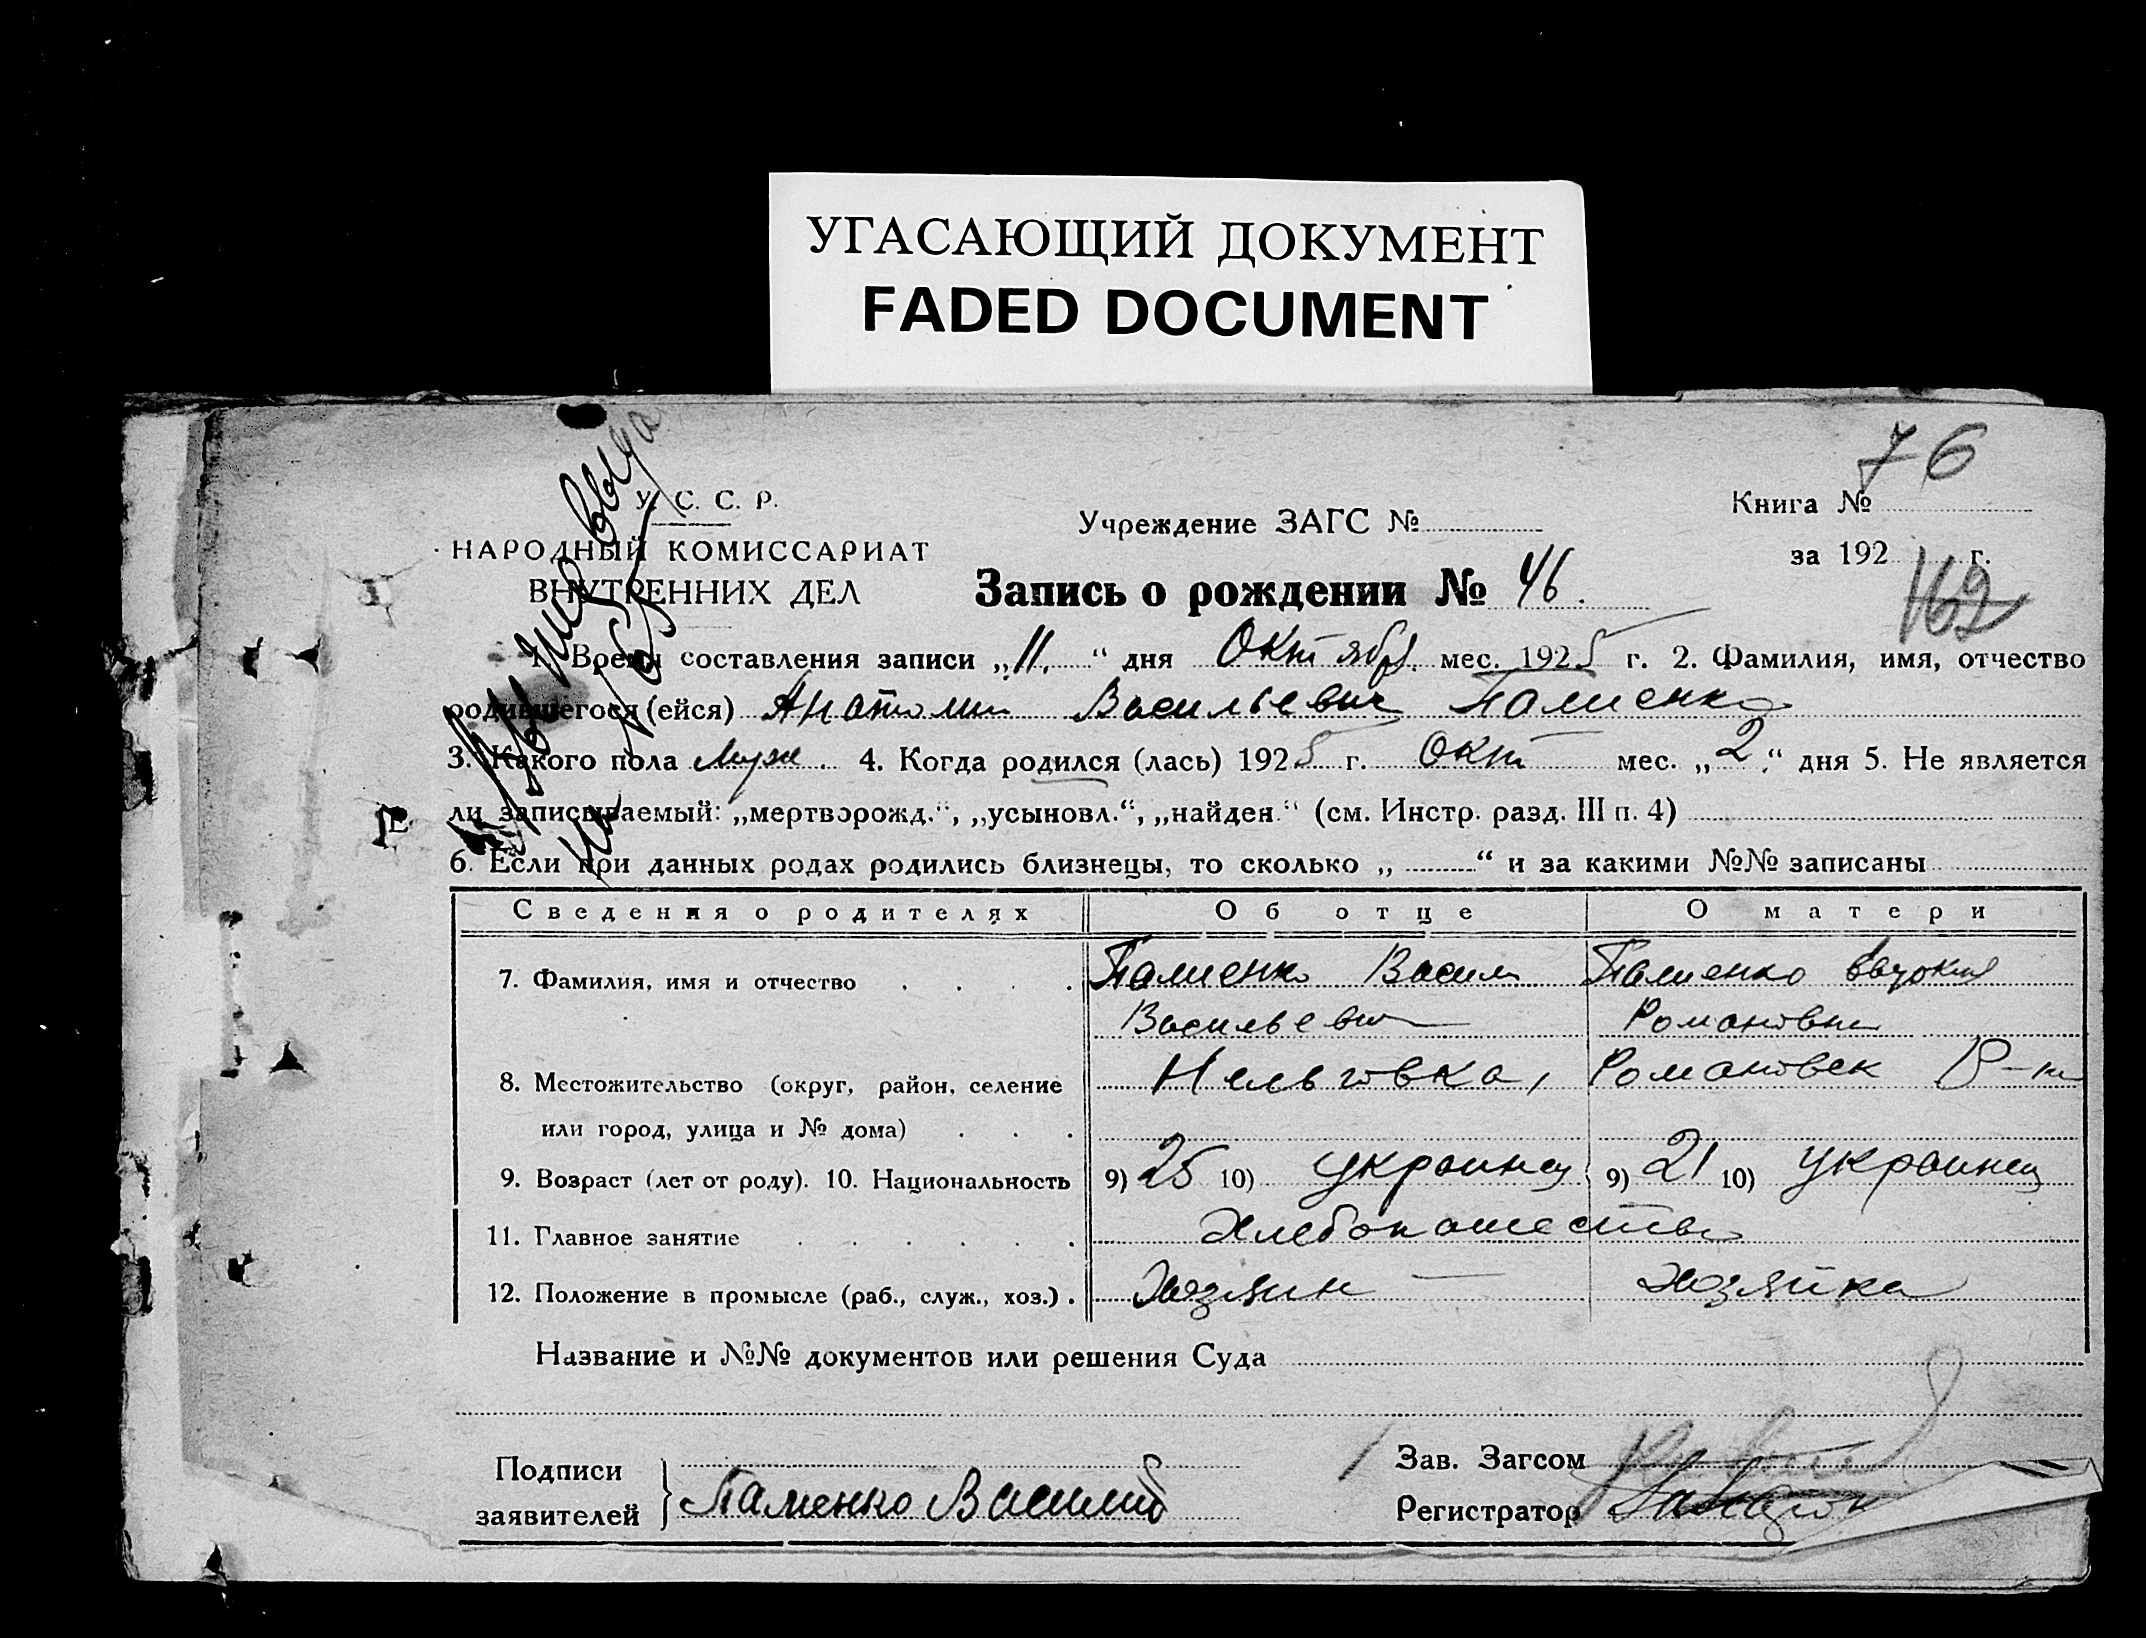 УГАСАЮЩИЙ ДОКУМЕНТ
FADED DOCUMENT
76
У. С. С. Р.
НАРОДНЫЙ КОМИССАРИАТ
ВНУТРЕННИХ ДЕЛ
Учреждение ЗАГС №
Книга №
за 192 г.
162
Запись о рождении № 46.
1. Время составления записи „11.“ дня Октябр. мес. 1925 г. 2. Фамилия, имя, отчество
родившегося (ейся) Анатолий Васильевич Паленко
3. Какого пола муж. 4. Когда родился (лась) 1925 г. Окт мес. „2.“ дня 5. Не является
ли записываемый: „мертворожд.“, „усыновл.“, „найден.“ (см. Инстр. разд. III п. 4)
6. Если при данных родах родились близнецы, то сколько „ “ и за какими №№ записаны
Сведения о родителях Об отце О матери
7. Фамилия, имя и отчество . . . . Паленко Васили Паленко Евдокия
Васильевич Романовна
8. Местожительство (округ, район, селение Нельговка, Романовск Р-н
или город, улица и № дома) . . .
9. Возраст (лет от роду). 10. Национальность 9) 25 10) украинец 9) 21 10) украинец
11. Главное занятие . . . . . . Хлебопашество
12. Положение в промысле (раб., служ., хоз.) . Хозяин — Хозяйка
Название и №№ документов или решения Суда
Подписи
заявителей
Паленко Василий
Зав. Загсом
Регистратор